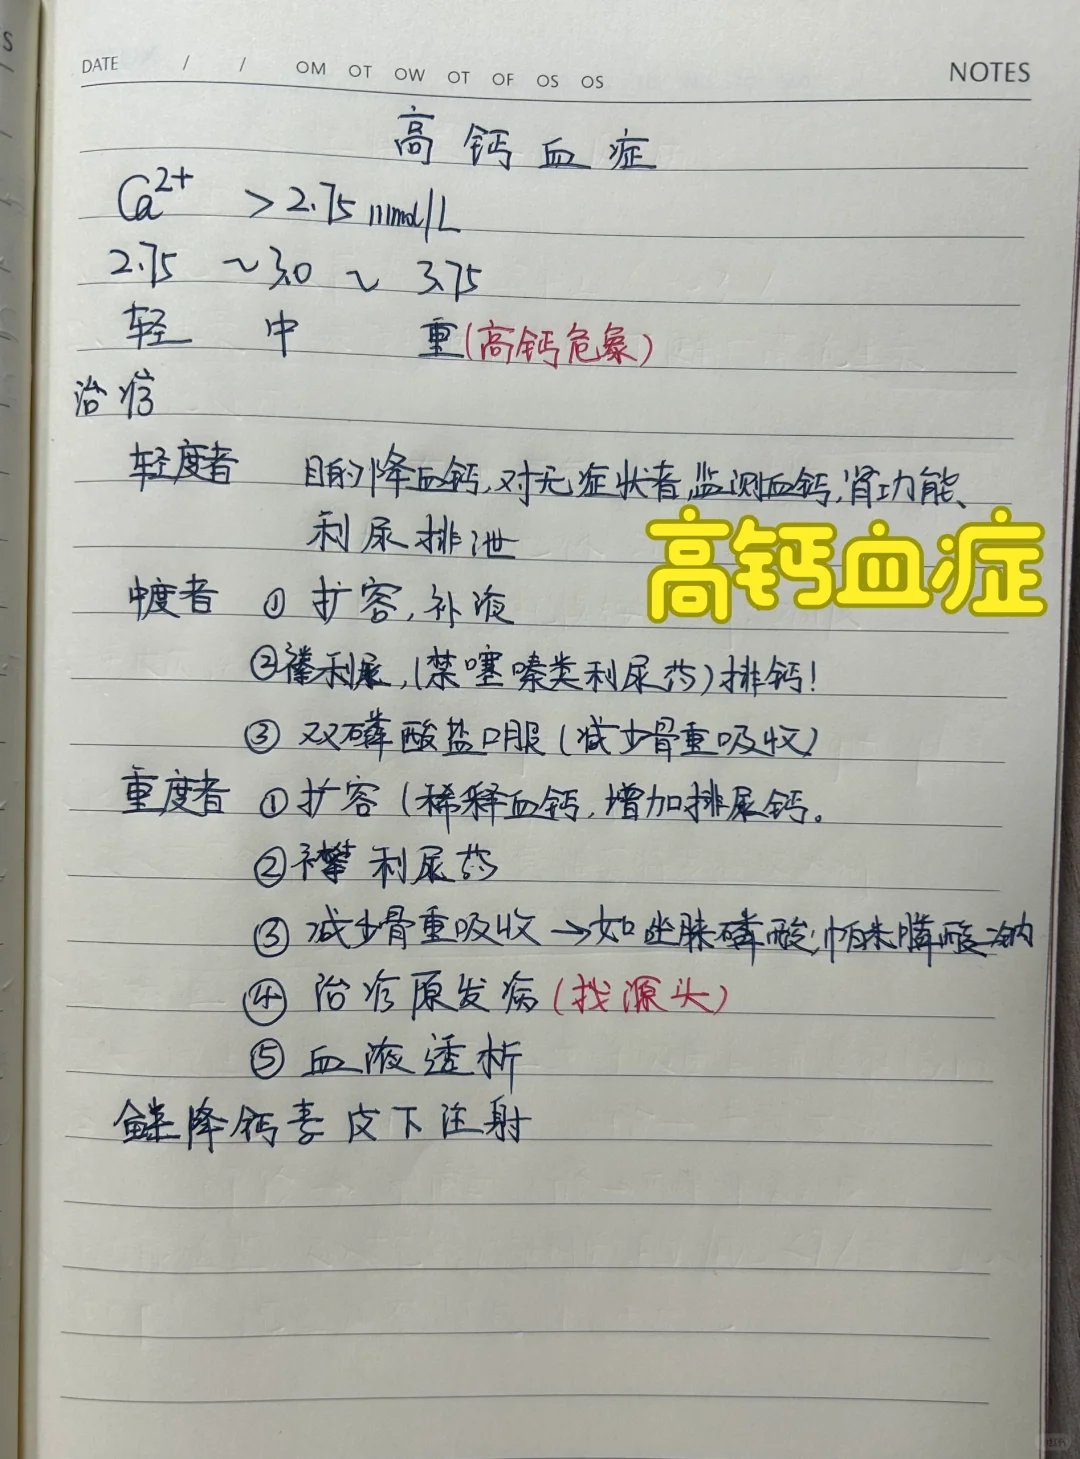 DATE / / OM OT OW OT OF OS OS NOTES
高钙血症
Ca²⁺ >2.75 mmol/L
2.75 ~3.0 ~ 3.75
轻 中 重(高钙危象)
治疗
轻度者 目的降血钙,对无症状者,监测血钙,肾功能、
利尿排泄
高钙血症
中度者 ① 扩容,补液
②襻利尿,(禁噻嗪类利尿药)排钙!
③ 双磷酸盐口服(减少骨重吸收)
重度者 ①扩容(稀释血钙,增加排尿钙。
②襻利尿药
③ 减少骨重吸收→如唑脎磷酸,帕米膦酸钠
④ 治疗原发病(找源头)
⑤ 血液透析
鲑降钙素皮下注射